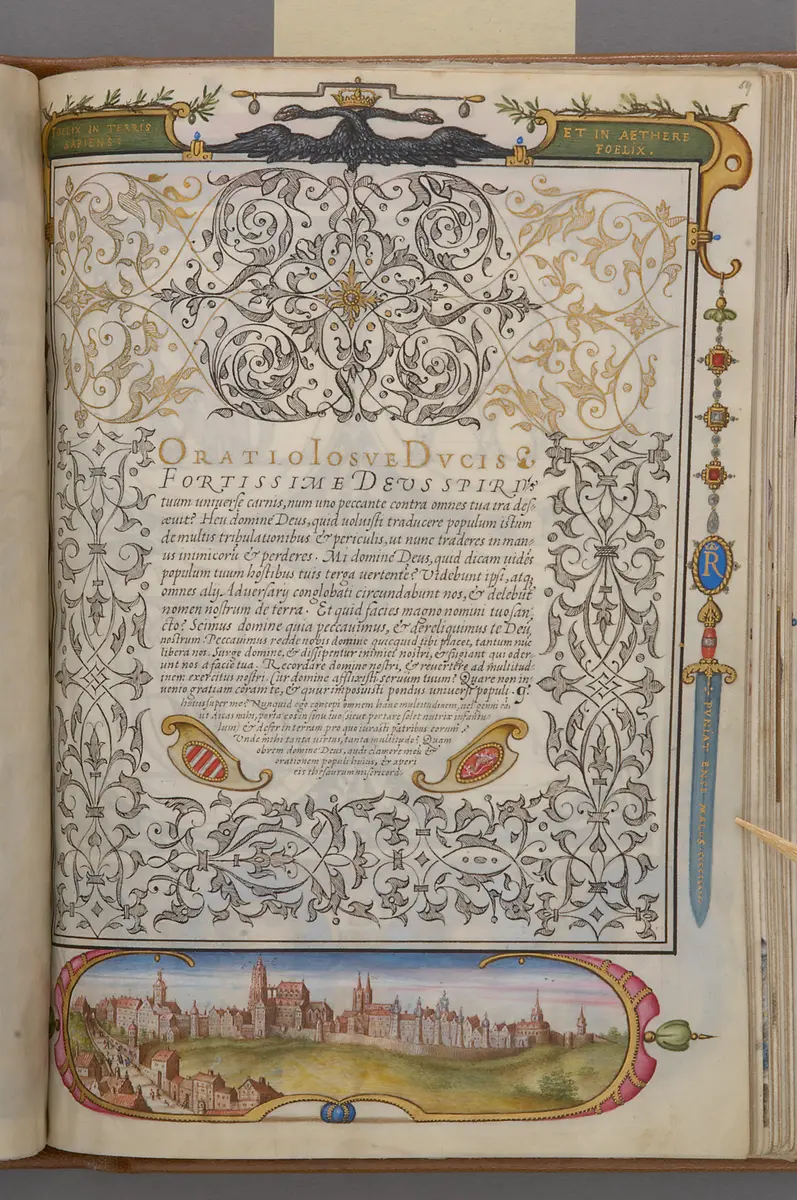 59
FOELIX IN TERRIS
SAPIENS:
ET IN AETHERE
FOELIX.
ORATIO IOSVE DVCIS
FORTISSIME DEVS SPIRI
tuum uniuerse carnis, num uno peccante contra omnes tua ira des
æuit? Heu domine Deus, quid uoluisti traducere populum istum
de multis tribulationibus & periculis, ut nunc traderes in man
us inimicorū & perderes. Mi domine Deus, quid dicam uidēs
populum tuum hostibus tuis terga uertente? Videbunt ipsi, atq
omnes alij. Aduersarij conglobati circundabunt nos, & delebūt
nomen nostrum de terra. Et quid facies magno nomini tuo san
cto? Scimus domine quia peccauimus, & dereliquimus te Deū
nostrum. Peccauimus redde nobis domine quicquid tibi placet, tantum nūc
libera nos. Surge domine, & dissipentur inimici nostri, & fugiant qui oder
unt nos a facie tua. Recordare domine nostri, & reuertere ad multitud
inem exercitus nostri. Cur domine afflixisti seruum tuum? Quare non in
uenio gratiam coram te, & quur imposuisti pondus uniuersi populi
huius super me? Nunquid ego concepi omnem hanc multitudinem, uel genui eā
ut dicas mihi, porta eos in sinu tuo, sicut portare solet nutrix infantu
lum, & defer in terram pro qua iurasti patribus eorum?
Vnde mihi tanta uirtus, tanta multitudo? Quam
obrem domine Deus, audi clamorē meū &
orationem populi huius, & aperi
eis thesaurum misericord
R
PVNIAT ENSE MALOS